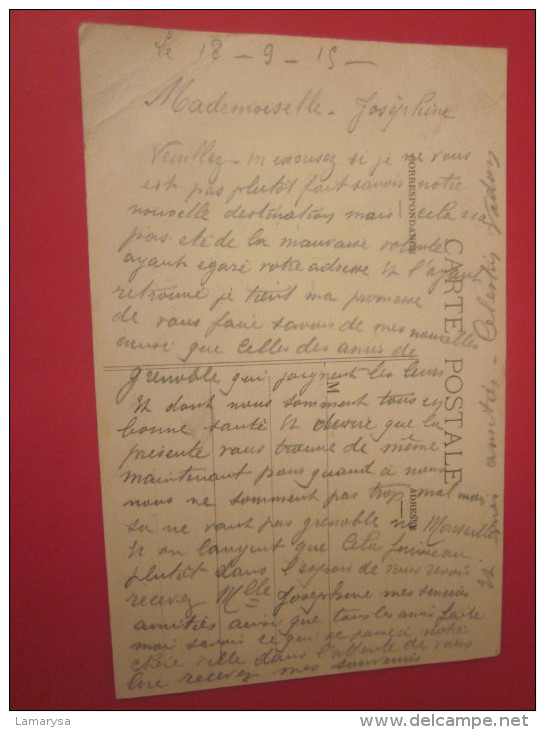 Le 18 - 9 - 15 -
Mademoiselle - Joséphine
Veuillez - m'excusez si je ne vous
est pas plutôt fait savoir notre
nouvelle destination mais cela n'a
pas eté de la mauvaise volonté
ayant egaré votre adresse et l'ayant
retrouvé je tient ma promesse
de vous faire savoir de mes nouvelles
aussi que celles des amis de
grenoble qui joignent les leurs
et dont nous somment tous en
bonne santé et desire que la
présente vous trouve de même
maintenant pour quand à nous
nous ne somment pas trop mal mais
sa ne vaut pas grenoble ni Marseille
et on languit que cela finisse au
plutôt dans l'espoir de vous revoir
recevez Mlle Josephine mes sincères
amitiés ainsi que tous les amis faite
moi savoir ce qui se passe à notre
chère ville dans l'attente de vous
lire recevez mes souvenirs
et mes amitiés - Celestin
CARTE POSTALE
CORRESPONDANCE
ADRESSE
M
Lamarysa
www.delcampe.net